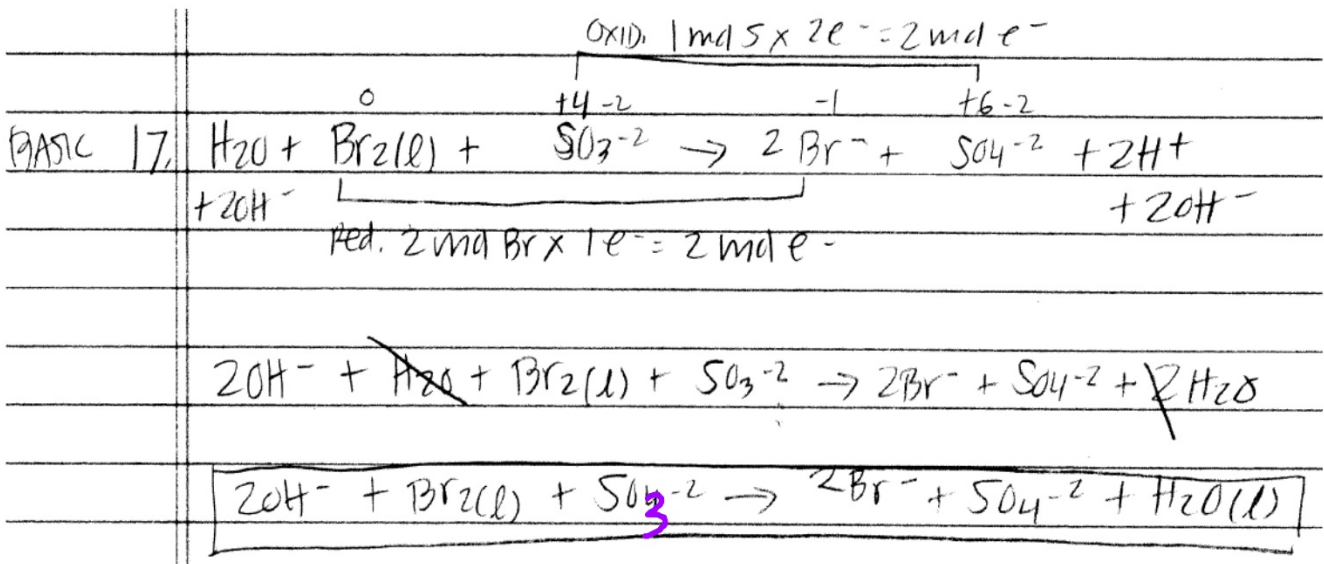 OXID. 1 mol S x 2e⁻ = 2 mol e⁻
0 +4 -2 -1 +6 -2
BASIC 17. H₂O + Br₂(l) + SO₃⁻² → 2 Br⁻ + SO₄⁻² + 2H⁺
+ 2OH⁻ + 2OH⁻
Red. 2 mol Br x 1e⁻ = 2 mol e⁻
2OH⁻ + H₂O + Br₂(l) + SO₃⁻² → 2Br⁻ + SO₄⁻² + 2H₂O
2OH⁻ + Br₂(l) + SO₃⁻² → 2Br⁻ + SO₄⁻² + H₂O(l)